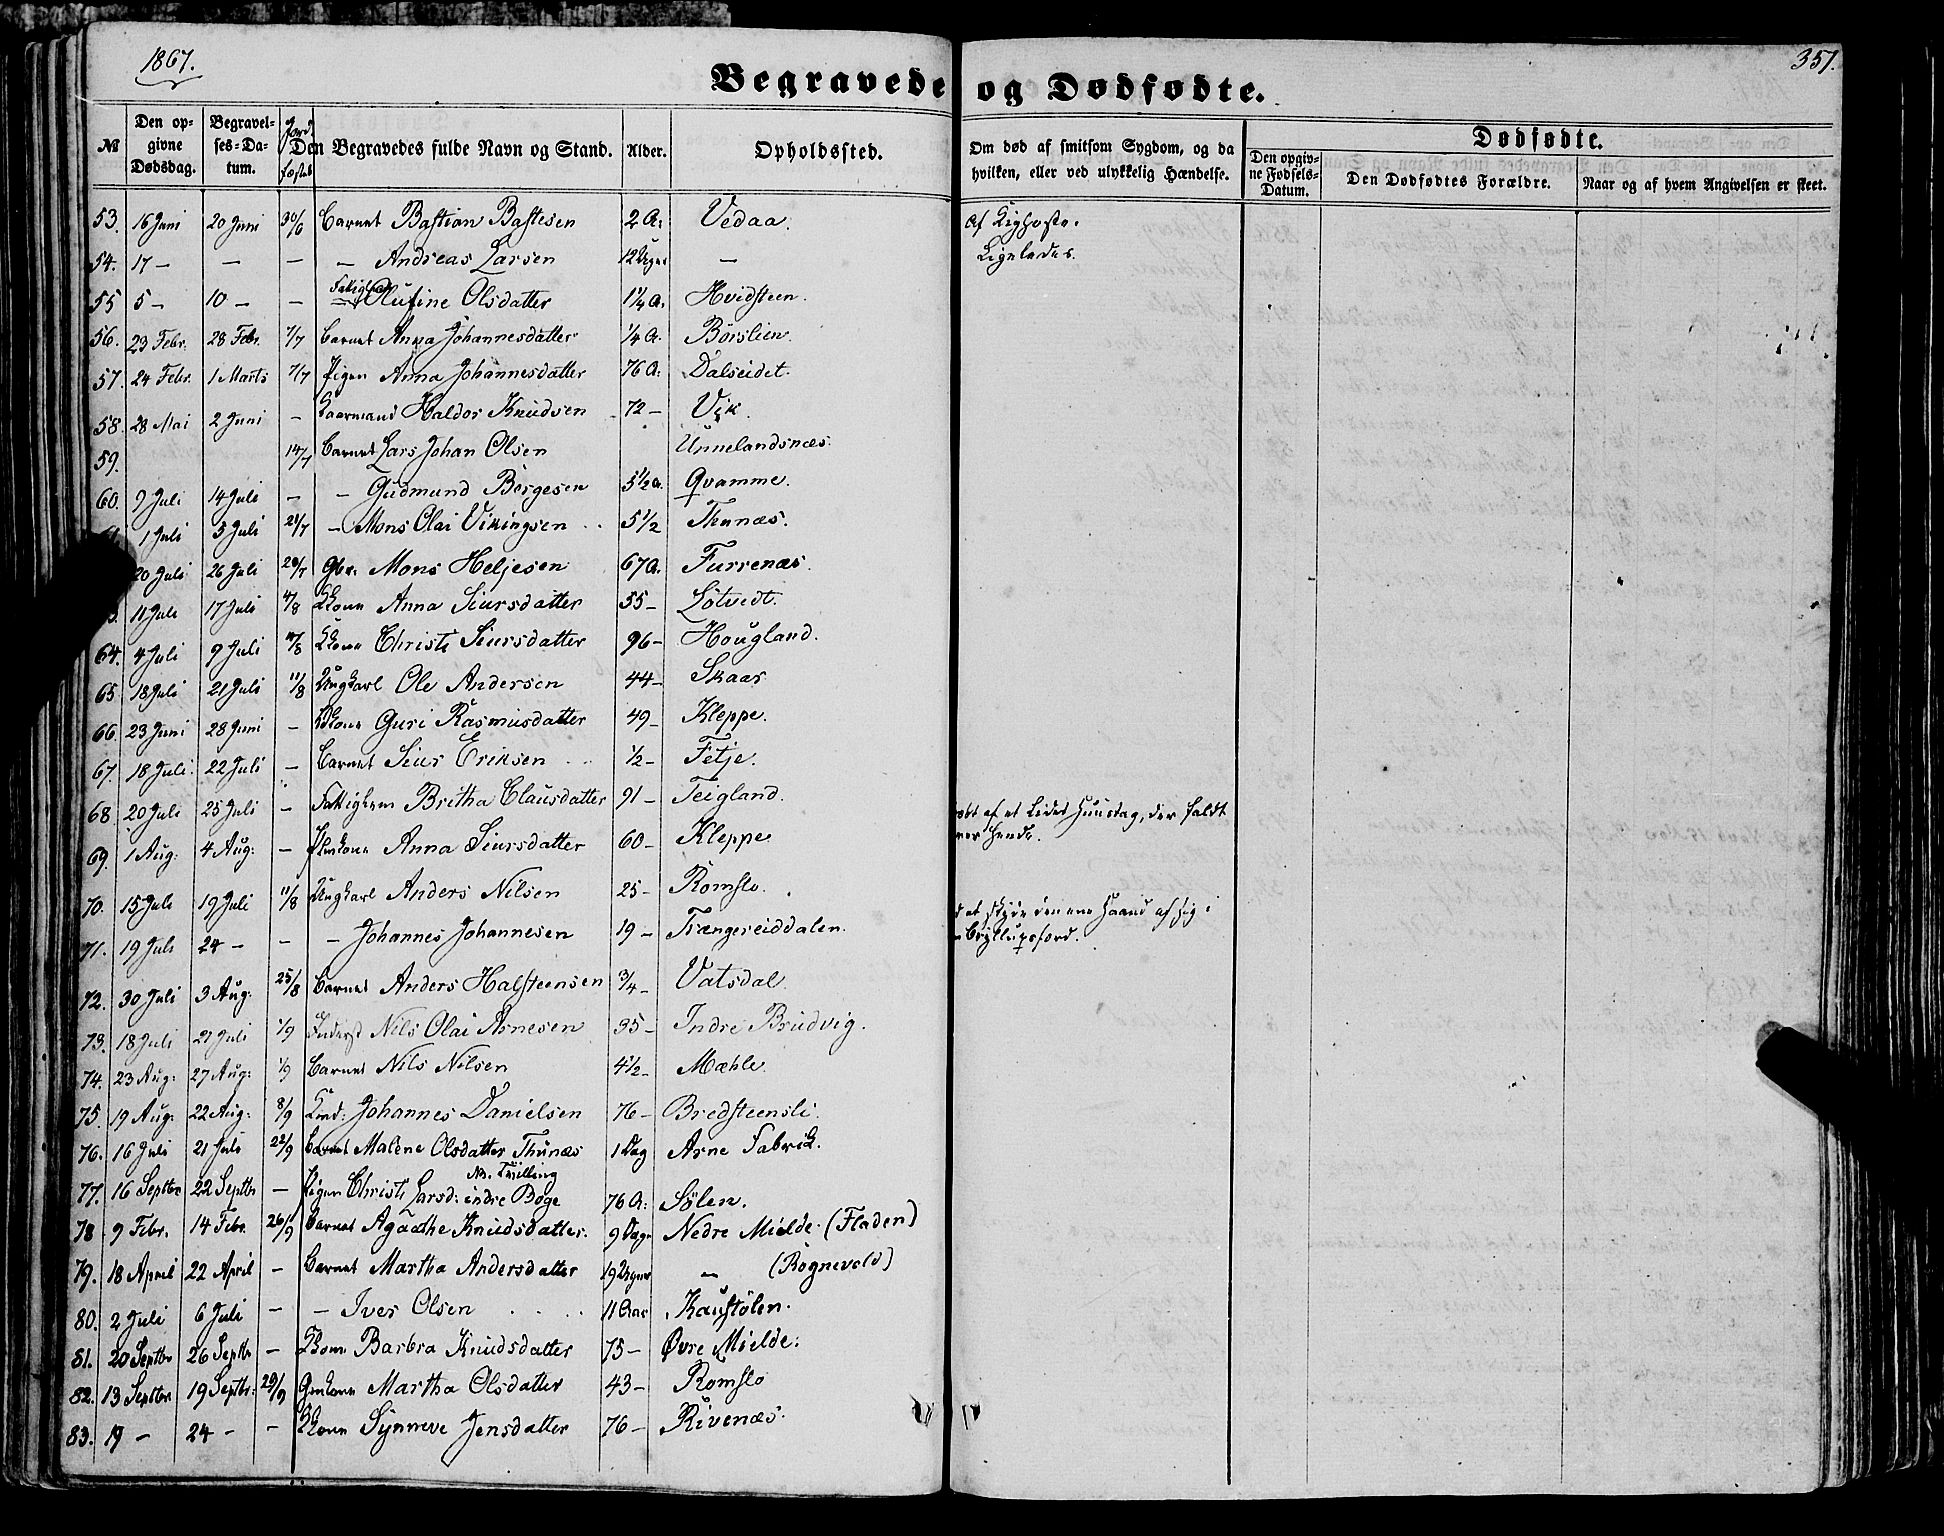 1867.
351.
Begravede og Dødfødte.
№ Den opgivne Dødsdag. Begravelses-Datum. Jordfæstet Den Begravedes fulde Navn og Stand. Alder. Opholdssted. Om død af smitsom Sygdom, og da hvilken, eller ved ulykkelig Hændelse. Den opgivne Fødsels-Datum. Dødfødte. Den Dødfødtes Forældre. Naar og af hvem Angivelsen er skeet.
53. 16 Juni 20 Juni 30/6 Barnet Bastian Bastesen 2 A: Vedaa. Af Kighoste.
54. 17 — — — — Andreas Larsen 12 Uger — Ligeledes.
55 5 — 10 — — Olufine Olsdatter 1¼ A. Hvidsteen.
56. 23 Febr. 28 Febr. 7/7 Barnet Anna Johannesdatter ¼ A. Børslien.
57. 24 Febr. 1 Marts 7/7 Pigen Anna Johannesdatter 76 A: Dalseidet.
58. 28 Mai 2 Juni — Kaarmand Haldor Knudsen 72 — Vik.
59. 14/7 Barnet Lars Johan Olsen Unnelandsnæs.
60. 9 Juli 14 Juli — — Gudmund Børgesen 5½ A. Qvamme.
1 Juli 5 Juli 21/7 — Mons Olai Vikingsen 5½ Thunæs.
20 Juli 26 Juli 28/7 Gbr. Mons Heljesen 67 A. Furrenæs.
11 Juli 17 Juli 4/8 Kkone Anna Siursdatter 55 — Løtvedt.
64. 4 Juli 9 Juli Kkone Christi Siursdatter 96 — Hougland.
65 18 Juli 21 Juli 11/8 Ungkarl Ole Andersen 44 — Skaar
66. 23 Juni 28 Juni — Guri Rasmusdatter 49 — Kleppe.
67. 18 Juli 22 Juli — Barnet Siur Eriksen ½ — Fetje.
68. 20 Juli 25 Juli — Fattiglem Britha Clausdatter 91 — Teigland.
69. 1 Aug: 4 Aug: — Anna Siursdatter 60 — Kleppe af et lidet Huustag, der faldt
over hende.
70. 15 Juli 19 Juli 11/8 Ungkarl Anders Nilsen 25 — Romslo.
71. 19 Juli 24 — — — Johannes Johannesen 19 — Trængereiddalen. at skyde den ene Haand af sig i
Bryllupsfærd.
72. 30 Juli 3 Aug. 25/8 Barnet Anders Halsteensen ¾ — Vatsdal.
73. 18 Juli 21 Juli 1/9 Inderst Nils Olai Arnesen 35 — Indre Brudvig.
74. 23 Aug: 27 Aug: 1/9 Barnet Nils Nilsen 4½ — Mæhle.
75. 19 Aug. 22 Aug. 8/9 Johannes Danielsen 76 — Bredsteensli.
76. 16 Juli 21 Juli 22/9 Barnet Malene Olsdatter Thunæs 1 Dag Arne Fabrik.
Tvilling
77. 16 Septbr 22 Septbr — Pigen Christi Larsd: indre Boge 76 A: Sølen.
78 9 Febr. 14 Febr. 26/9 Barnet Agaathe Knudsdatter. 9 Dage Nedre Mielde (Fladen)
79. 18 April 22 April — Barnet Martha Andersdatter 19 Uger — (Rognevold)
80. 2 Juli 6 Juli — — Iver Olsen 11 Aar Kaustølen.
81. 20 Septbr 26 Septbr — Kkone Barbra Knudsdatter 75 — Øvre Mielde.
82. 13 Septbr. 19 Septbr. 29/9 Martha Olsdatter 43 — Romslo
83. 19 — 24 — — Kkone Synneve Jensdatter 76 — Rivenæs.